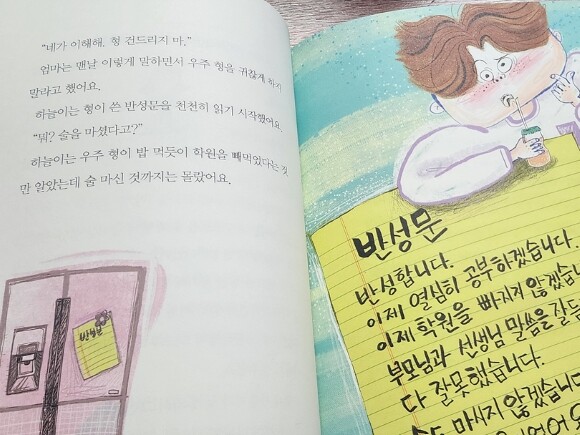 “네가 이해해. 형 건드리지 마.”
엄마는 맨날 이렇게 말하면서 우주 형을 귀찮게 하지
말라고 했어요.
하늘이는 형이 쓴 반성문을 천천히 읽기 시작했어요.
“뭐? 술을 마셨다고?”
하늘이는 우주 형이 밥 먹듯이 학원을 빼먹었다는 것
만 알았는데 술 마신 것까지는 몰랐어요.
반성문
반성문
반성합니다.
이제 열심히 공부하겠습니다.
이제 학원을 빠지지 않겠습니
부모님과 선생님 말씀을 잘 듣
다 잘못했습니다.
마시지 않겠습니다